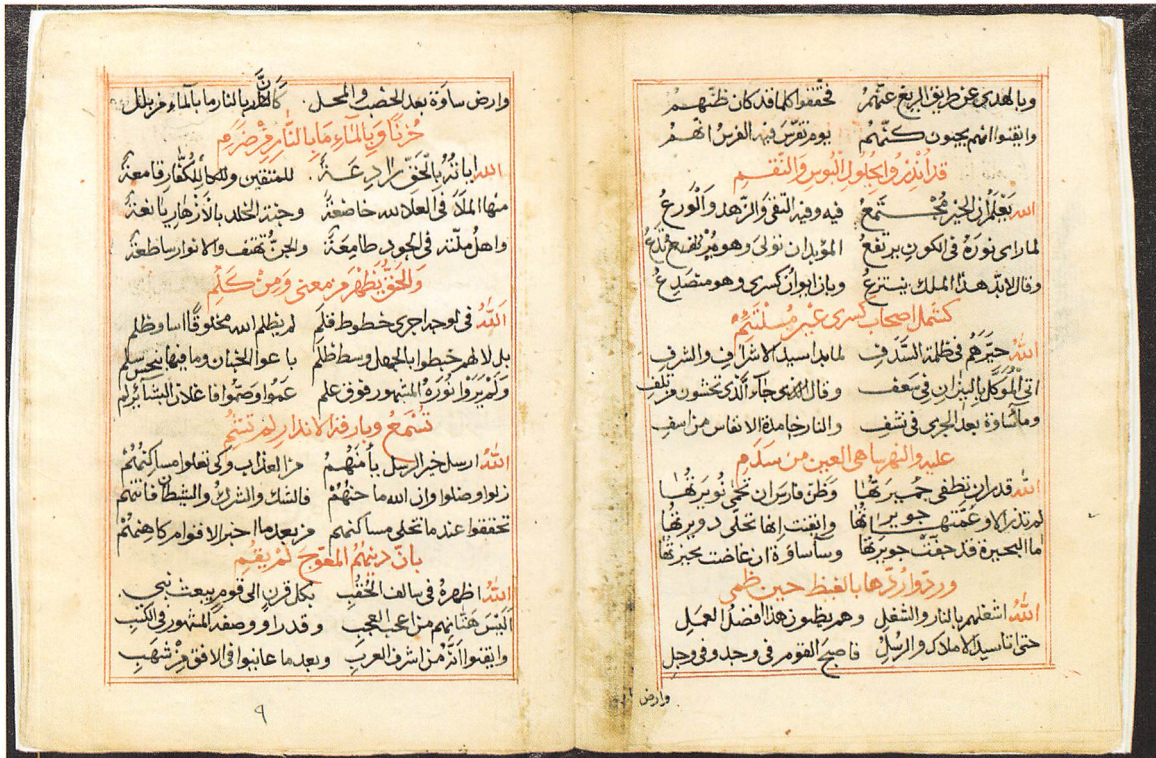 وبالهدى عن طريق الزيغ عنهم فحققوا كلما قد كان ظنهم
وايقنوا انهم يجبون كنهم يوم تفرس فيه الفرس انهم
قد أنذروا بحلول البؤس والنقم
الله يعلم أن الخير مجتمع فيه وفيه التقى والزهد والورع
لما راى نوره في الكون يرتفع الموبذان تولى وهو مرتفع
وقال لابد هذا الملك ينتزع وبات ايوان كسرى وهو متصدع
كشمل اصحاب كسرى غير ملتئم
الله حيرهم في ظلمة السدف لما بدا سيد الاشراف والشرف
اتى الموكل بالنيران في سعف وقال الذي جاء الذي تخشون من تلف
وماء ساوة بعد الجرى في نشف والنار خامدة الانفاس من اسف
عليه والنهر ساهي العين من سدم
الله قدر ان تطفى جميرتها وظن فارس ان تحمى نويرتها
لم تدر الا وعمتها وايقنت انها تخلى دويرتها
اما البحيرة قد جفت وساء ساوة ان غاضت بحيرتها
ورد واردها بالغيظ حين ظمى
الله اشغلهم بالنار والشغل وهم يظنون هذا افضل العمل
حتى اتا سيد الاملاك والرسل فاصبح القوم في وجد وفي وجل
وارض
وارض ساوة بعد الخصب والمحل كأن بالنار ما بالماء من بلل
حزنا وبالماء ما بالنار من ضرم
الله اياته بالحق رادعة للمتقين وللكفار قامعة
منها الملا في العلا لله خاضعة وجنة الخلد بالازهار يانعة
واهل ملته في الجود طامعة والجن تهتف والانوار ساطعة
والحق يظهر من معنى ومن كلم
الله في لوحه اجرى خطوط قلم لم يظلم الله مخلوقا اسا وظلم
بل لالهم خبطوا بالجهل وسط ظلم باعوا الجنان وما فيها ببخس سلم
ولم يروا نوره المشهور فوق علم عموا وصموا فاعلان البشائر لم
تسمع وبارقة الانذار لم تشم
الله ارسل خير الرسل يأمنهم من العذاب وكي تعلوا مساكنهم
زلوا وضلوا وان الله ما حنهم فالشك والشرك والشيطان فاتنهم
تحققوا عند ما تخلى مساكنهم من بعد ما اخبر الاقوام كاهنهم
بان دينهم المعوج لم يقم
الله اظهره في سالف الحقب بكل قرن الى قوم يبعث نبي
اليس هتانهم من اعجب العجب وقد راوا وصفه المشهور في الكتب
وايقنوا انه من اشرف العرب وبعد ما عاينوا في الافق من شهب
٩